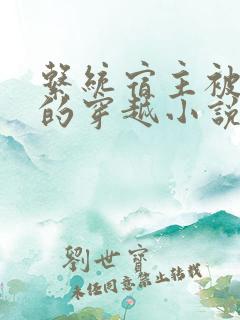 系統宿主被
的穿越小說
劉世寶
未經同意禁止轉載